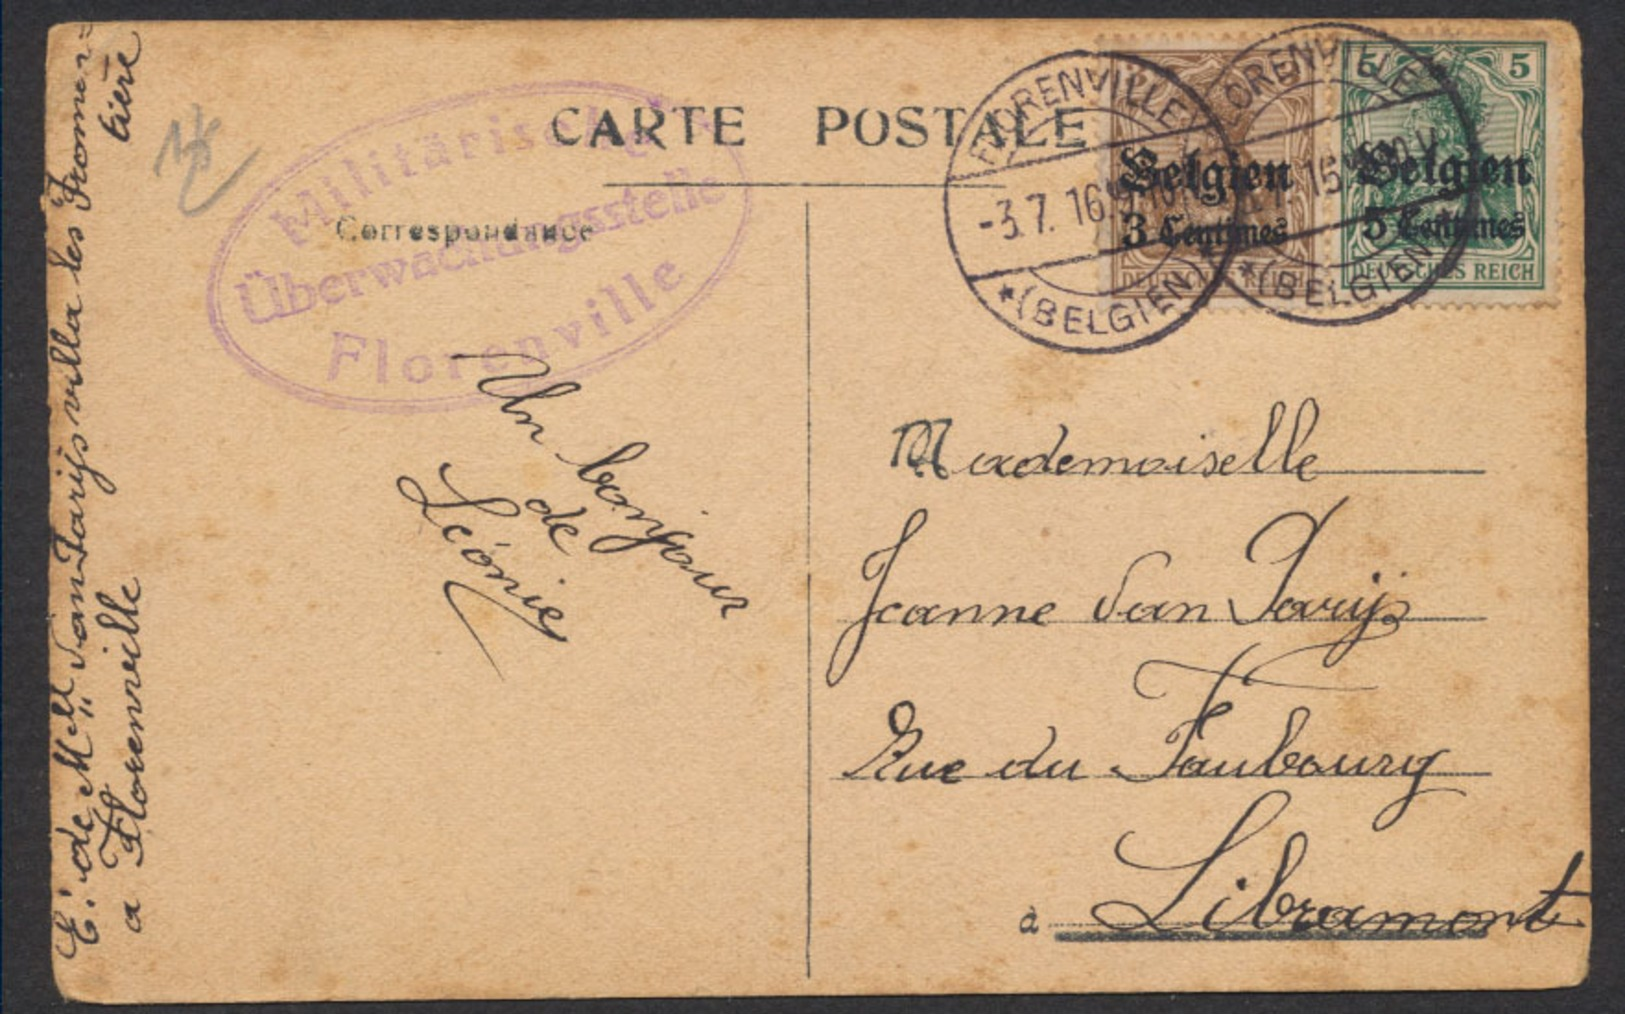 CARTE POSTALE
Correspondance
Militärische
Überwachungsstelle
Florenville
FLORENVILLE
-3.7.16.9-10V
*(BELGIEN)
Belgien
3 Centimes
DEUTSCHES REICH
FLORENVILLE
*(BELGIEN)
5
Belgien
5 Centimes
DEUTSCHES REICH
Un bonjour
de
Léonie
Mademoiselle
Jeanne Van Parijs
Rue du Faubourg
à Libramont
E: de Mell Van Parijs villa les Fromen=
tière
a Florenville